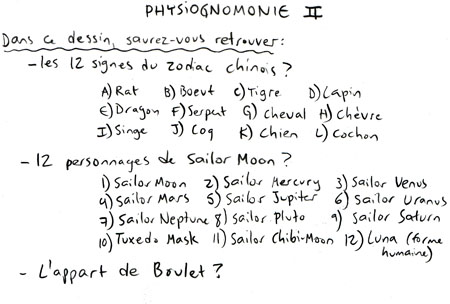 PHYSIOGNOMONIE II
Dans ce dessin, saurez-vous retrouver:
- les 12 signes du zodiac chinois ?
A) Rat B) Boeuf C) Tigre D) Lapin
E) Dragon F) Serpent G) Cheval H) Chèvre
I) Singe J) Coq K) Chien L) Cochon
- 12 personnages de Sailor Moon ?
1) Sailor Moon 2) Sailor Mercury 3) Sailor Venus
4) Sailor Mars 5) Sailor Jupiter 6) Sailor Uranus
7) Sailor Neptune 8) Sailor Pluto 9) Sailor Saturn
10) Tuxedo Mask 11) Sailor Chibi-Moon 12) Luna (forme
humaine)
- L'appart de Boulet ?